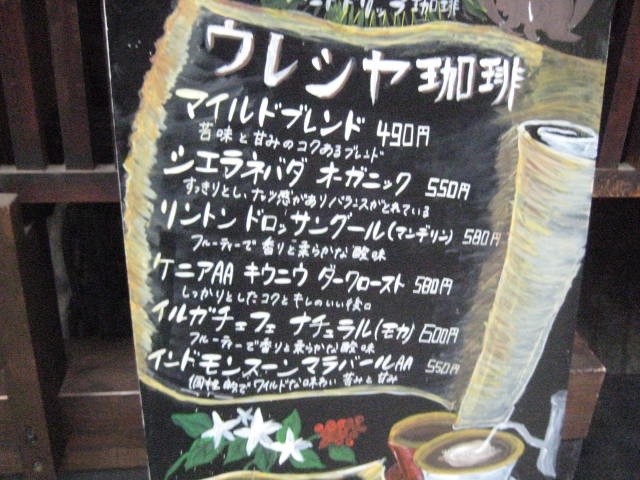 ドリップ珈琲
ウレシヤ珈琲
マイルドブレンド 490円
苦味と甘みのコクあるブレンド
シエラネバダ オーガニック 550円
すっきりとし、ナッツ感がありバランスがとれている
リントン ドロッサングール(マンデリン) 580円
フルーティーで香りと柔らかな酸味
ケニアAA キウニウ ダークロースト 580円
しっかりとしたコクとキレのいい後口
イルガチェフェ ナチュラル(モカ) 600円
フルーティーで香りと柔らかな酸味
インドモンスーンマラバールAA 550円
個性的でワイルドな味わい 苦みと甘み